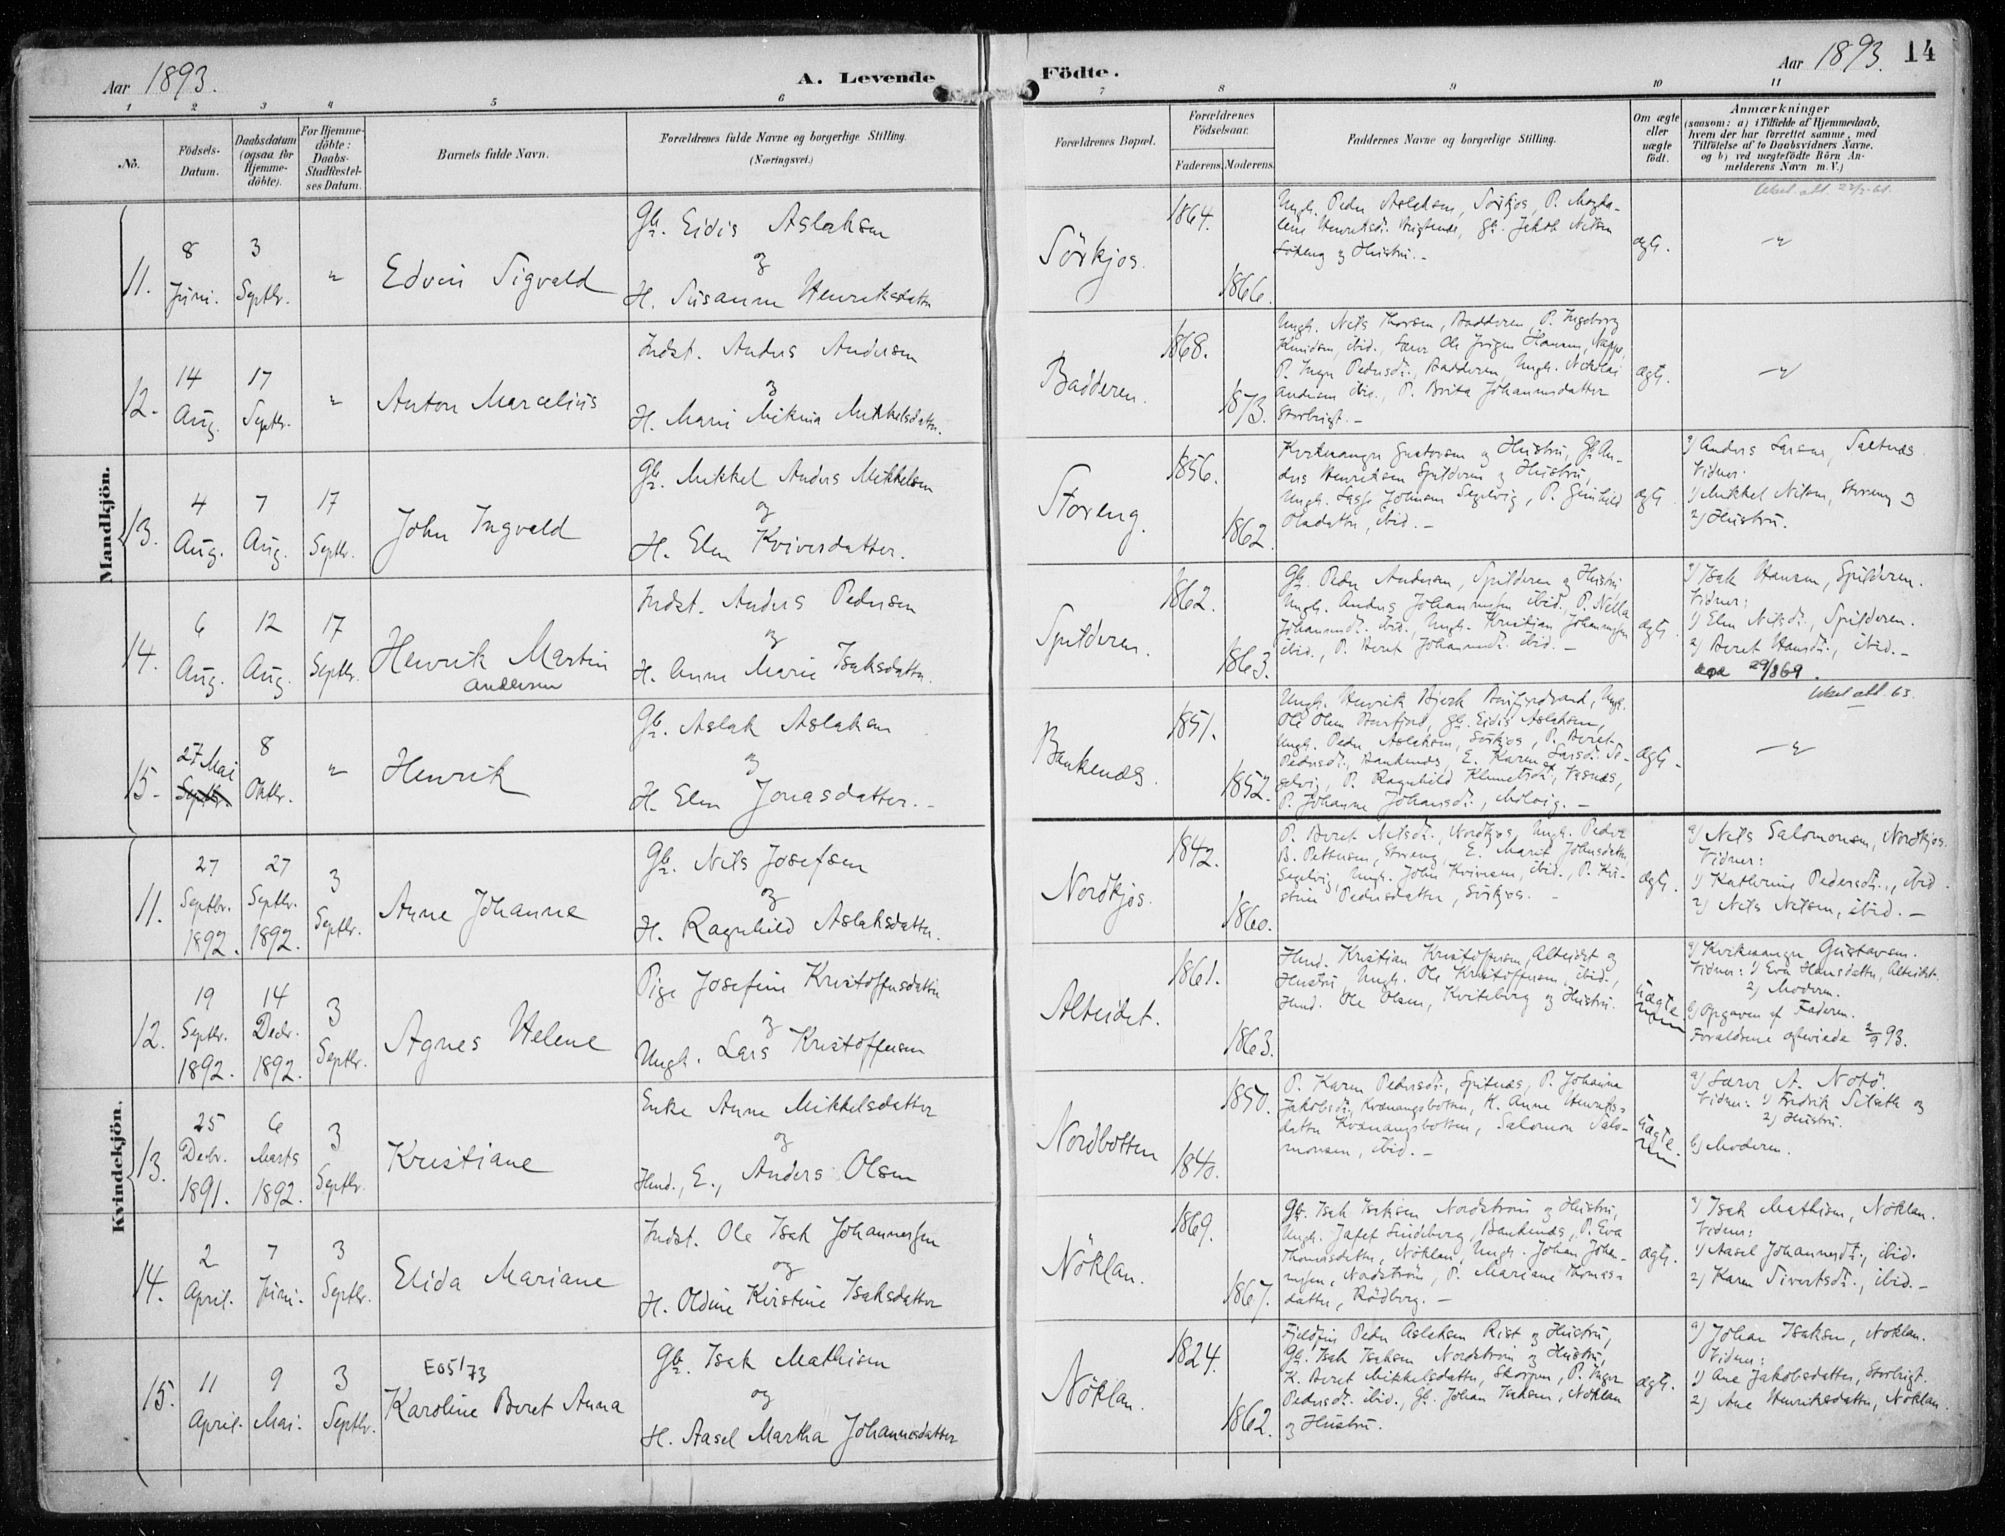 Aar 1893.
A. Levende
Födte.
Aar 1893. 14
1 2 3 4 5 6 7 8 9 10 11
No.
Födsels-Datum.
Daabsdatum (ogsaa for Hjemmedöbte).
For Hjemmedöbte: Daabs-Stadfæstelses Datum.
Barnets fulde Navn.
Forældrenes fulde Navne og borgerlige Stilling.
(Næringsvei.)
Forældrenes Bopæl.
Forældrenes Födselsaar.
Faderens. Moderens.
Faddernes Navne og borgerlige Stilling.
Om ægte eller uægte födt.
Anmærkninger
(saasom: a) i Tilfælde af Hjemmedaab,
hvem der har forrettet samme, med
Tilföielse af to Daabsvidners Navne,
og b) ved uægtefödte Börn An-
melderens Navn m. V.)
Mandkjön.
11.
8 Juni.
3 Septbr.
"
Edvin Sigvald
Gb. Eidis Aslaksen
og
H. Susanne Henriksdatter
Sörkjos.
1864.
1866.
Ungk. Peder Aslaksen, Sörkjos, P. Magda-
lene Henriksdr. gb. Jakob Nilsen
og Hustru. -
ægte.
"
12.
14 Aug.
17 Septbr.
"
Anton Marcelius
Indst. Anders Andersen
og
H. Marie Mikkelsdatter.
Badderen.
1868.
1873.
Ungk. Nils Thorsen, Badderen, P. Ingeborg
Knudsen, ibid., Lærer Ole Jörgen Hansen,
P. Inger Pedersdr., Badderen, Ungk. Nikolai
Andersen ibid., P. Brita Johannesdatter
Storbugt. -
ægte.
"
13.
4 Aug.
7 Aug.
17 Septbr.
John Ingvald
Gb. Mikkel Anders Mikkelsen
og
H. Elen Kviversdatter.
Storeng.
1856.
1862.
Kirkesanger Gustavsen og Hustru, Gb. An-
ders Henriksen Spilderen og Hustru,
Ungk. Lasse Johnsen Segelvig, P. Gunhild
Oladatter, ibid. -
ægte.
a) Anders Larsen, Saltnæs.
Vidner.
1) Mikkel Nilsen, Storeng og
2) Hustru.
14.
6 Aug.
12 Aug.
17 Septbr.
Henrik Martin
Andersen
Indst. Anders Pedersen
og
H. Anne Marie Isaksdatter.
Spilderen.
1862.
1863.
Gb. Peder Andersen, Spilderen og Hustru
Ungk. Anders Johannessen ibid., P. Nella
Johannesdr. ibid., Ungk. Kristian Johannessen
ibid., P. Beret Johannesdr. ibid. -
ægte.
a) Isak Hansen, Spilderen.
Vidner:
1) Elen Nilsdr., Spilderen.
2) Beret Hansdr., ibid. -
29/8 69.
15.
27 Mai
Septbr.
8 Oktbr.
"
Henrik
Gb. Aslak Aslaksen
og
H. Elen Jonasdatter. -
Bankenæs.
1851.
1852.
Ungk. Henrik Bjerk Burfjordvand, Ungk.
Ole Olsen Burfjord, gb. Eidis Aslaksen,
Ungk. Peder Aslaksen, Sörkjos, P. Beret
Pedersdr., Bankenæs, E. Karen Larsdr. Se-
gelvig, P. Ragnhild Klemetsdr.,
P. Johanne Johansdr., -
ægte -
"
Kvindekjön.
11.
27 Septbr. 1892.
27 Septbr. 1892.
3 Septbr.
Anne Johanne
Gb. Nils Josefsen
og
H. Ragnhild Aslaksdatter.
Nordkjos.
1842.
1860.
P. Beret Nilsdr., Nordkjos, Ungk. Peder
B. Pettersen, Storeng, E. Marit Johnsdatter
Segelvig, Ungk. John Kviversen, ibid., P. Kri-
stine Pedersdatter, Sörkjos. -
ægte.
a) Nils Salomonsen, Nordkjos.
Vidner:
1) Kathrine Pedersdr., ibid.
2) Nils Nilsen, ibid. -
12.
19 Septbr. 1892.
14 Decbr. 1892.
3 Septbr.
Agnes Helene
Pige Josefine Kristoffersdatter
og
Ungk. Lars Kristoffersen
Alteidet.
1861.
1863.
Hmd. Kristian Kristoffersen, Alteidet og
Hustru, Ungk. Ole Kristoffersen, ibid.,
Hmd. Ole Olsen, Kviteberg og Hustru.
uægte
a) Kirkesanger Gustavsen.
Vidner: 1) Eva Hansdatter, Alteidet.
2) Moderen.
b) Opgaven af Faderen.
Forældrene ægteviede 2/9 93.
13.
25 Decbr. 1891.
6 Marts 1892.
3 Septbr.
Kristiane
Enke Anne Mikkelsdatter
og
Hmd., E., Anders Olsen
Nordbotten
1850.
1840.
P. Karen Pedersdr., Spilnæs, P. Johanne
Jakobsdr., Kvænangsbotten, K. Anne Henriks-
datter Kvænangsbotten, Salomon Salo-
monsen, ibid. -
uægte
a) Lærer A. Notö.
Vidner: 1) Fredrik og
2) Hustru.
b) Moderen.
14.
2 April.
7 Juni.
3 Septbr.
Elida Mariane
Indst. Ole Isak Johannessen
og
H. Oldine Kristine Isaksdatter
Nöklan.
1869.
1867.
Gb. Isak Isaksen Nordström og Hustru,
Ungk. Jafet Lindberg, Bankenæs, P. Eva
Thomasdatter, Nöklan, Ungk. Johan Johan-
nesen, Nordström, P. Mariane Thomas-
datter, Rödberg. -
ægte.
a) Isak Mathisen, Nöklan.
Vidner:
1) Aasel Johannesdr., ibid.
2) Karen Sivertsdr., ibid. -
15.
11 April.
9 Mai.
3 Septbr.
E051/73
Karoline Beret Anna
Gb. Isak Mathisen
og
H. Aasel Martha Johannesdatter
Nöklan.
1824.
1862.
Fjeldfin Peder Aslaksen Rist og Hustru,
Gb. Isak Isaksen Nordström og Hustru,
K. Beret Mikkelsdatter, Skorpen, P. Inger
Pedersdr. ibid., Gb. Johan Isaksen, Nöklan
og Hustru.
ægte.
a) Johan Isaksen, Nöklan.
Vidner:
1) Ane Jakobsdatter, Storbugt.
2) Ane Henriksdatter, Nöklan.